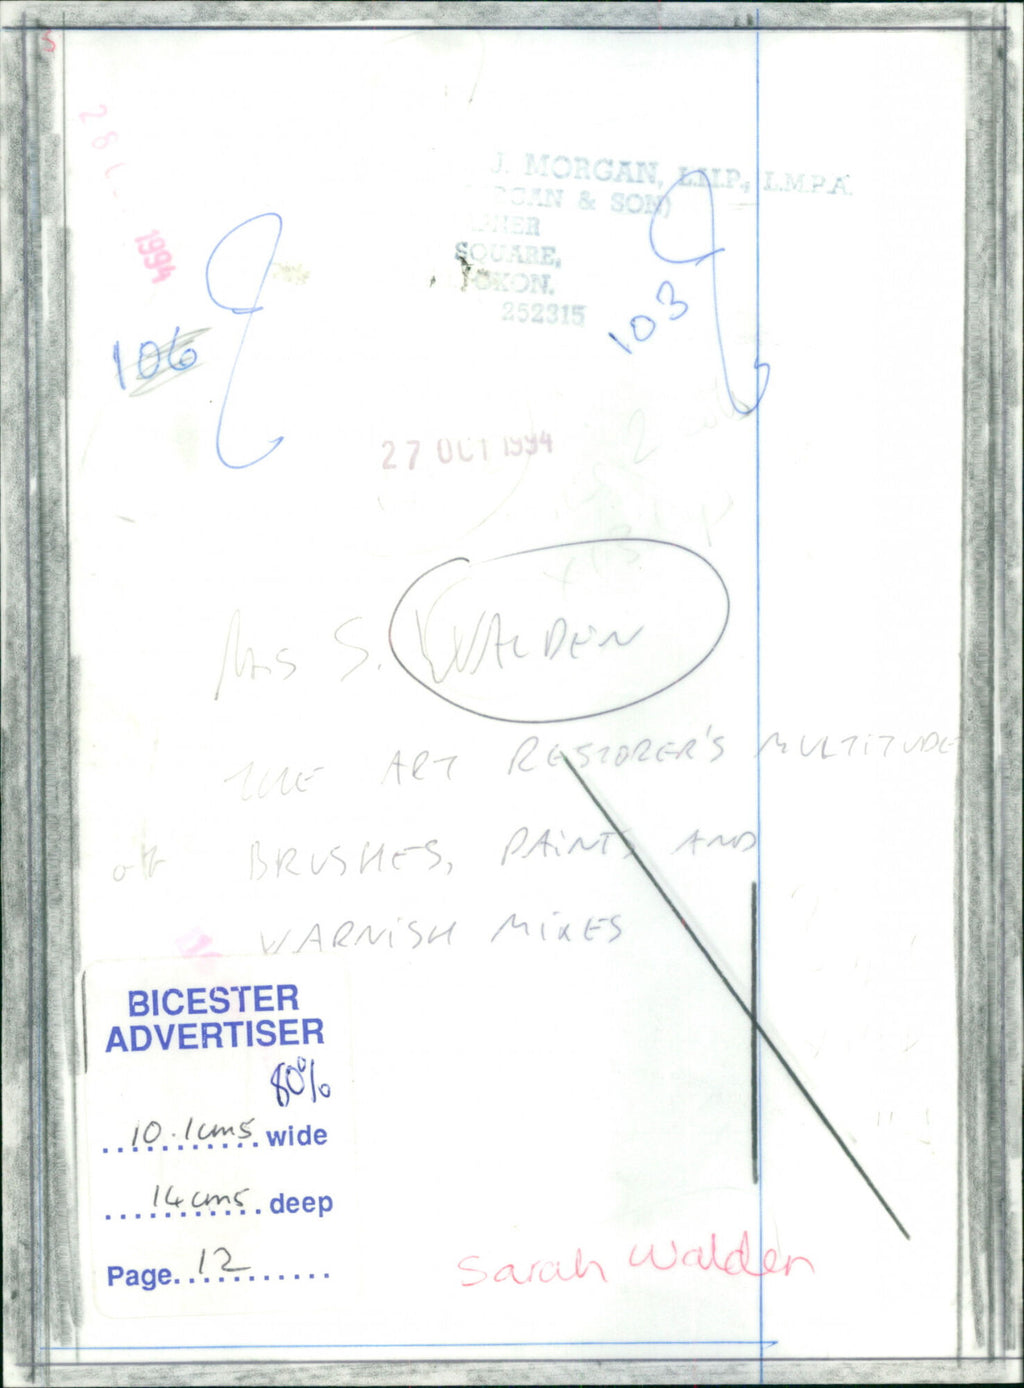 J. MORGAN, L.I.I.P., L.M.P.A.
& SON)
SQUARE,
OXON.
252315
1994
106
103
27 OCT 1994
Mrs S. WALDEN
THE ART RESTORER'S MULTITUDE
of BRUSHES, PAINTS AND
VARNISH MIXES
BICESTER
ADVERTISER
80%
10.1cms wide
14cms deep
Page 12
Sarah Walden